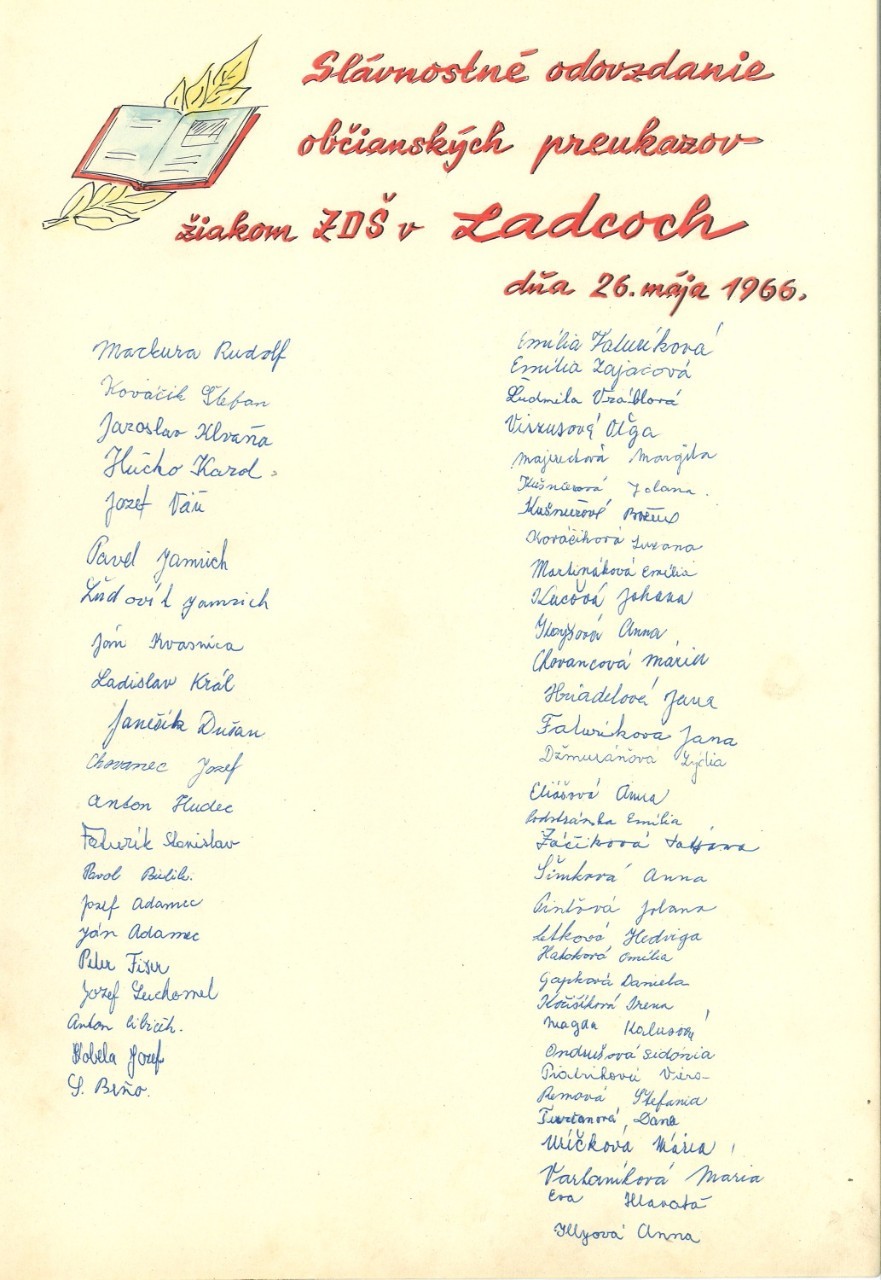 Slávnostné odovzdanie
občianských preukazov
žiakom ZDŠ v Ladcoch
dňa 26. mája 1966.
Mackura Rudolf
Kováčik Štefan
Jaroslav Klvaňa
Hlúčho Karol
Jozef Váň
Pavel Jamrich
Ľudovít Jamrich
Ján Kvasnica
Ladislav Král
Janešík Dušan
Chovanec Jozef
Anton Hudec
Faturík Stanislav
Pavol
Jozef Adamec
Ján Adamec
Peter
Jozef Suchomel
Anton
Kobela Jozef
Š.
Emília Faturíková
Emília Zajacová
Ľudmila Vráblová
Oľga
Margita
Kušnierová Jolana
Kušnierová
Kováčiková Zuzana
Martináková Emília
Kucová Johana
Anna
Chovancová Mária
Hriadelová Jana
Faturíkova Jana
Džmuráňová Lýdia
Eliášová Anna
Podstránska Emília
Žáčiková Tatjána
Šimková Anna
Jolana
Letková Hedviga
Emília
Gapková Daniela
Irena
Magda
Ondrušová Sidónia
Piatriková Viera
Remová Štefania
Dana
Uríčková Mária
Vartaníková Maria
Eva Hlavatá
Illyová Anna